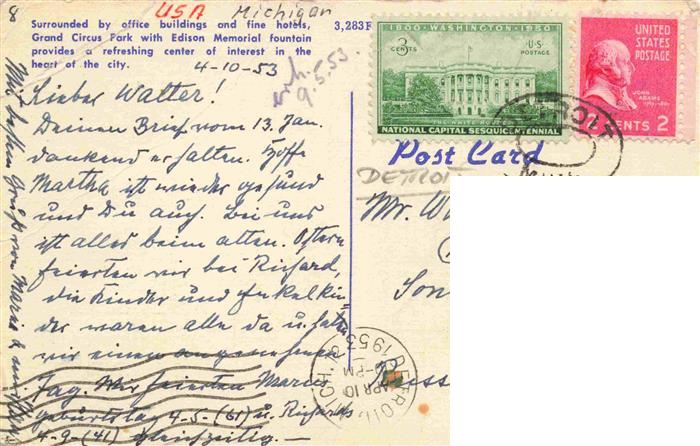 8
USA Michigan
Surrounded by office buildings and fine hotels,
Grand Circus Park with Edison Memorial fountain
provides a refreshing center of interest in the
heart of the city.
3,283
4-10-53
9.5.53.
Lieber Walter!
Deinen Brief vom 13. Jan.
dankend erhalten. Hoffe
Martha ist wieder gesund
und Du auch. Bei uns
ist alles beim alten. Ostern
feierten wir bei Richard,
die Kinder und Enkelkin-
der waren alle da u. hatten
wir einen angenehmen
Tag. Wir feierten Maries
Geburtstag 4-5-(61) u. Richards
4-9-(41) gleichzeitig.—
Mit besten Gruß von Marie
1800-WASHINGTON-1950
3 CENTS
U·S· POSTAGE
THE WHITE HOUSE
NATIONAL CAPITAL SESQUICENTENNIAL
UNITED
STATES
POSTAGE
JOHN
ADAMS
CENTS 2
Post Card
DETROIT
Mr. W
Son
Russ
DETROIT
DETROIT, MICH.
APR 10
PM
1953